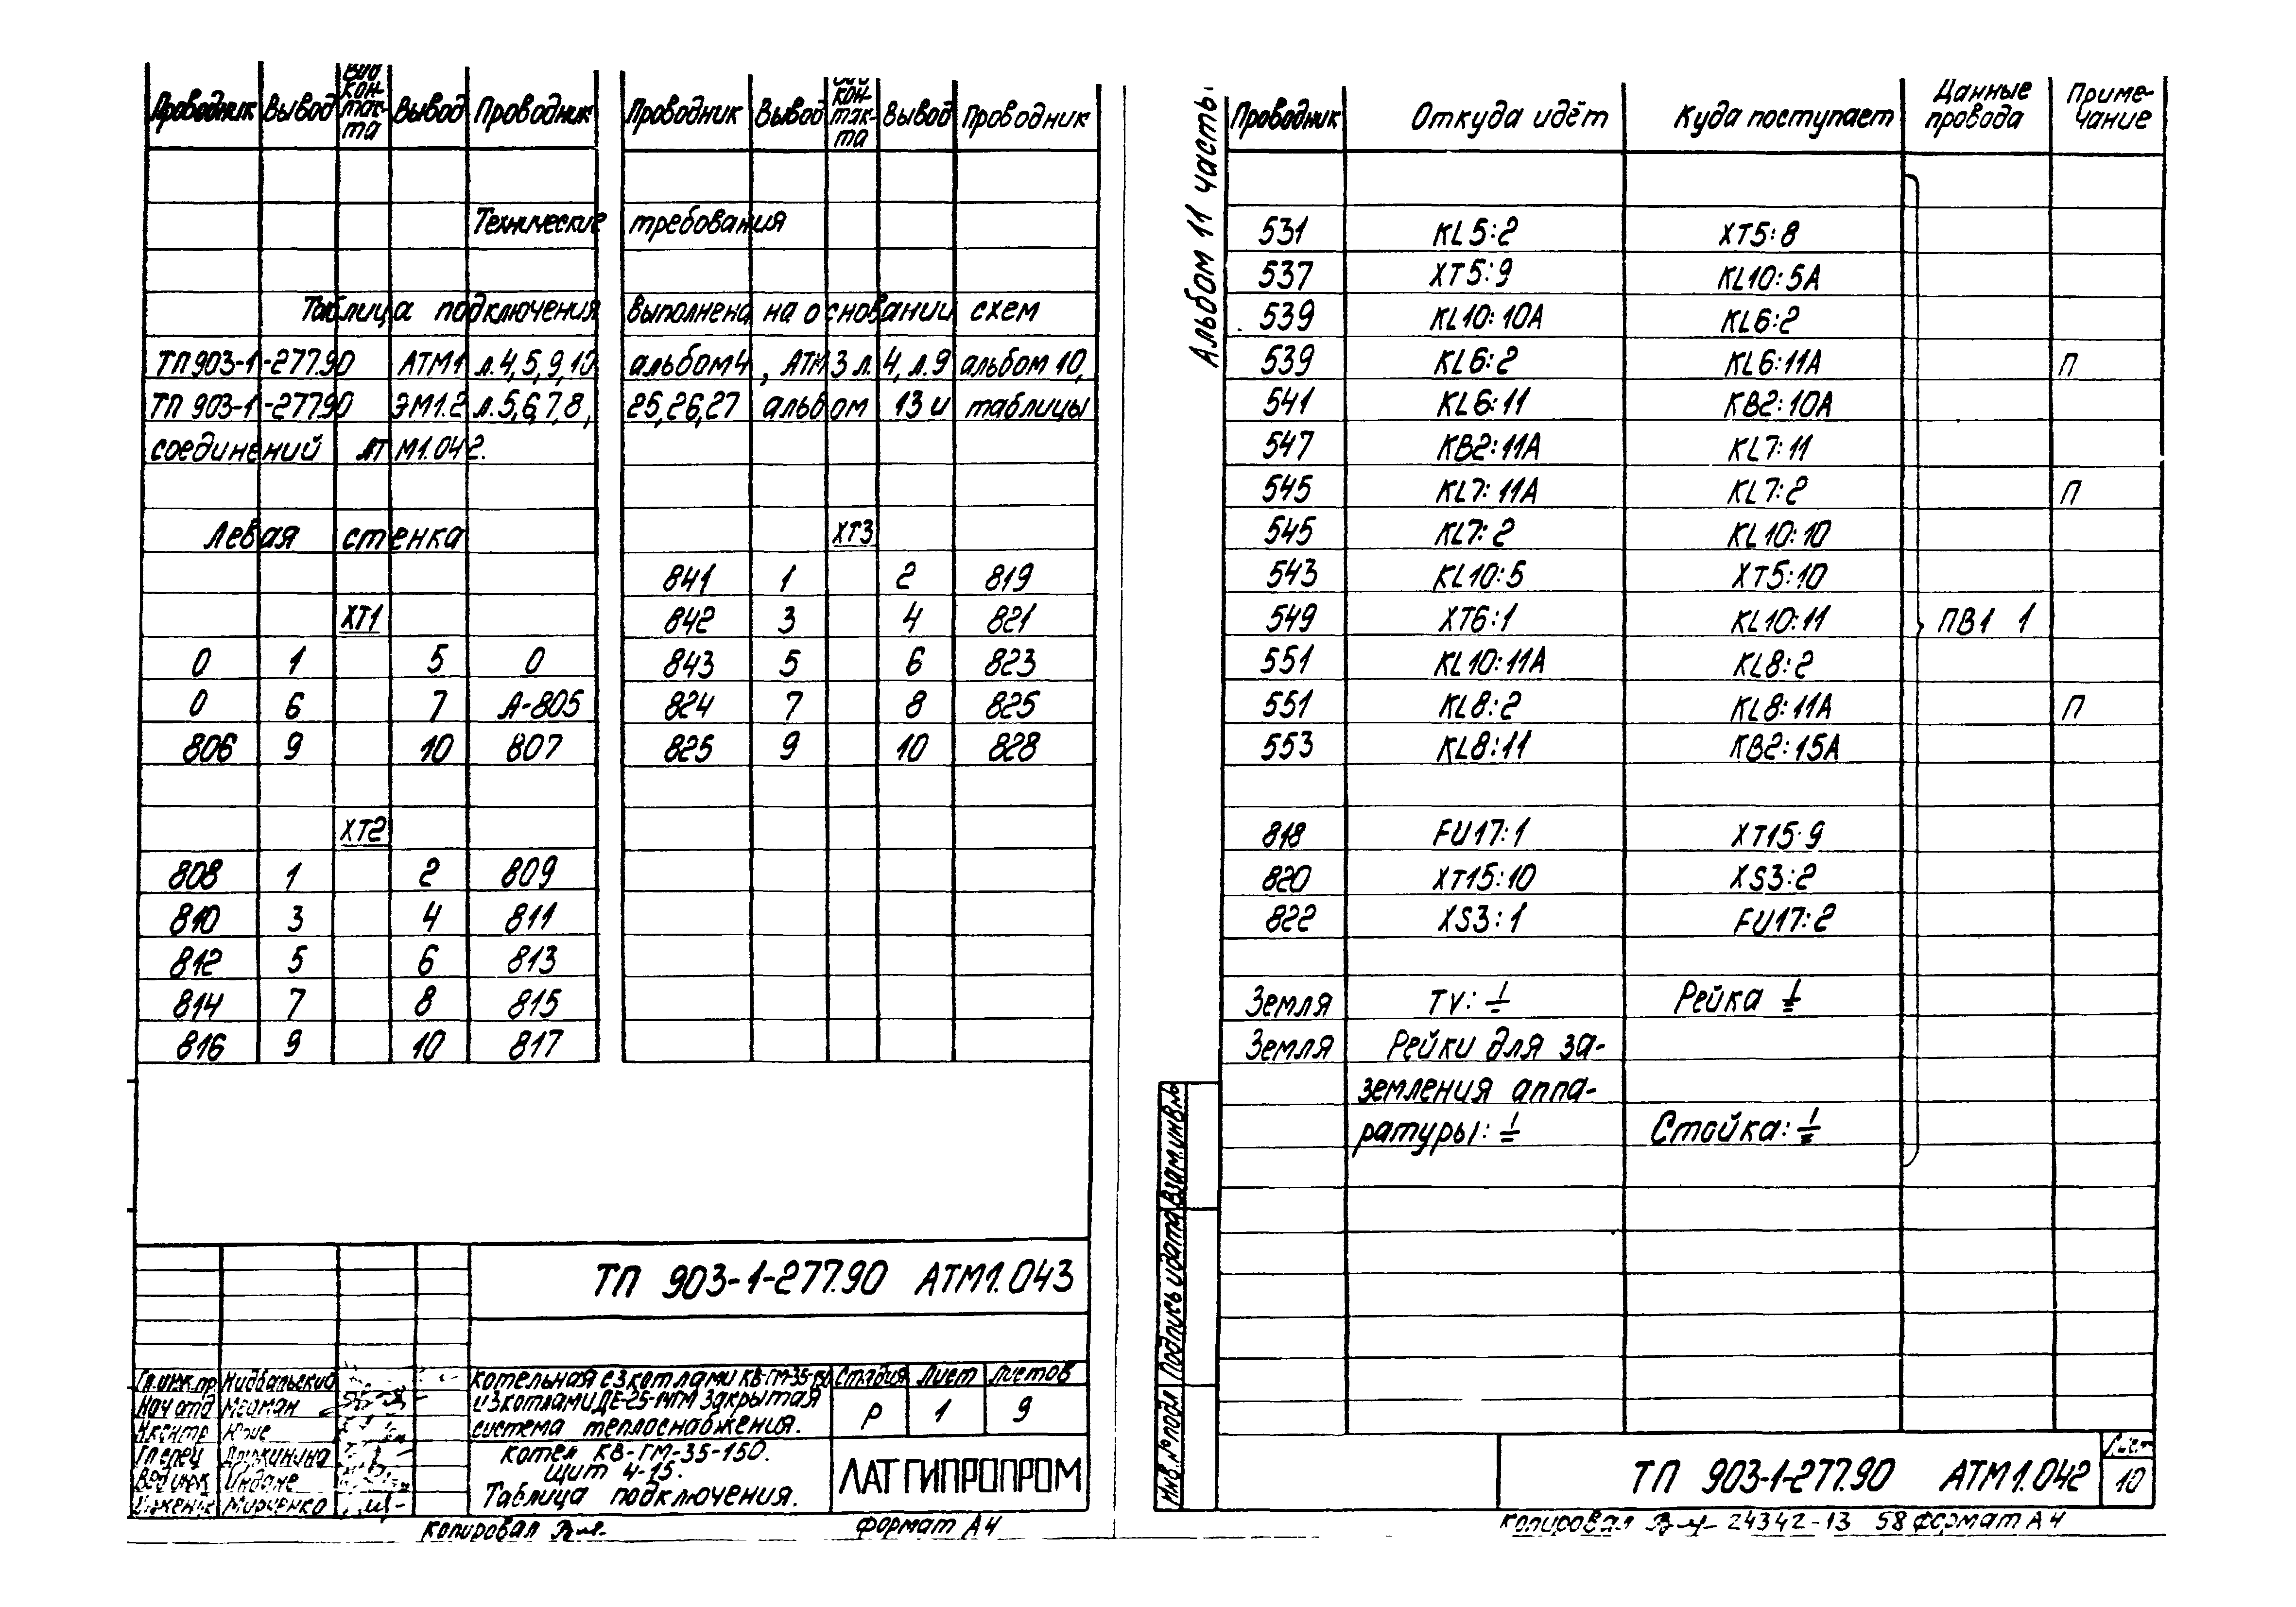 Проводник Вывод Вид контакта Вывод Проводник Проводник Вывод контакта Вывод Проводник
Технические требования
Таблица подключения выполнена на основании схем
ТП 903-1-277.90 АТМ1 л.4,5,9,10 альбом 4, АТМ3 л.4, л.9 альбом 10,
ТП 903-1-277.90 ЭМ1.2 л.5,6,7,8, 25,26,27 альбом 13 и таблицы
соединений АТМ1.042.
Левая стенка
ХТ1
0 1 5 0
0 6 7 А-805
806 9 10 807
ХТ2
808 1 2 809
810 3 4 811
812 5 6 813
814 7 8 815
816 9 10 817
ХТ3
841 1 2 819
842 3 4 821
843 5 6 823
824 7 8 825
825 9 10 828
ТП 903-1-277.90 АТМ1.043
Гл.инж.пр
Нач отд
Н.контр Юрие
Гл спец Дружинина
Вед инж Индане
Инженер Мирченко
Котельная с 3 котлами КВ-ГМ-35-150
и 3 котлами ДЕ-25-14ГМ Закрытая
система теплоснабжения.
Котел КВ-ГМ-35-150.
Щит 4-15.
Таблица подключения.
Стадия Лист Листов
Р 1 9
ЛАТГИПРОПРОМ
Копировал
Формат А4
Альбом 11 часть
Проводник Откуда идёт Куда поступает Данные провода Примечание
531 KL5:2 XT5:8
537 XT5:9 KL10:5A
539 KL10:10A KL6:2
539 KL6:2 KL6:11A П
541 KL6:11 KB2:10A
547 KB2:11A KL7:11
545 KL7:11A KL7:2 П
545 KL7:2 KL10:10
543 KL10:5 XT5:10
549 XT6:1 KL10:11 ПВ1 1
551 KL10:11A KL8:2
551 KL8:2 KL8:11A П
553 KL8:11 KB2:15A
818 FU17:1 XT15:9
820 XT15:10 XS3:2
822 XS3:1 FU17:2
Земля TV: ⏚ Рейка ⏚
Земля Рейки для за-
земления аппа-
ратуры: ⏚ Стойка: ⏚
Взам.инв.№
Подпись и дата
Инв.№ подл
ТП 903-1-277.90 АТМ1.042
Лист
10
Копировал 24342-13 58 формат А4